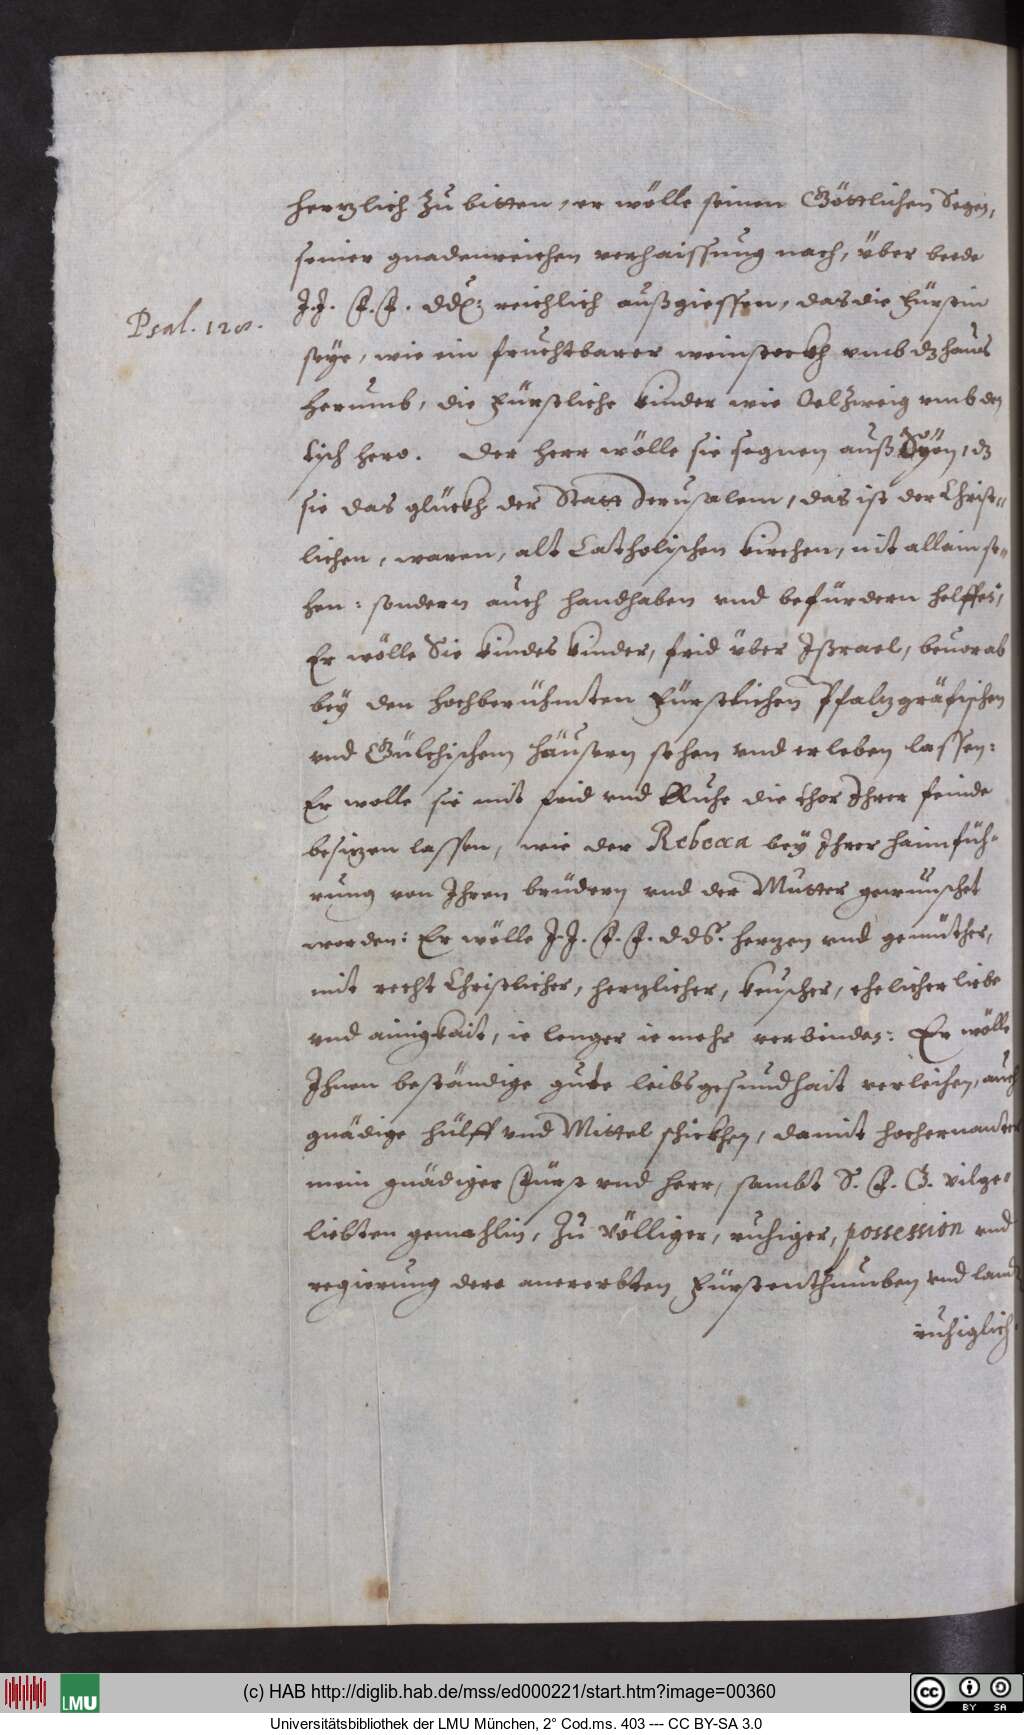 hertzlich zu bitten, er wölle seinen Göttlichen Segen,
seiner gnadenreichen verhaissung nach, über beede
Psal. 128.
J.J. F.F. DD: reichlich außgiessen, das die Fürstin
seye, wie ein fruchtbarer weinstockh vmb dz hauß
herumb, die Fürstliche kinder wie Oelzweig vmb den
tisch hero. Der herr wölle sie segnen auß Syon, dz
sie das glückh der Statt Jerusalem, das ist der Christ-
lichen, waren, alt Catholischen kirchen, nit allain se-
hen: sondern auch handhaben vnd befürdern helffen,
Er wölle Sie kindes kinder, frid über Jßrael, beuorab
bey den hochberühmten Fürstlichen Pfaltzgräfischen
vnd Gülchischem häusern sehen vnd erleben lassen:
Er wolle sie mit frid vnd Ruhe die thor Jhrer feinde
besitzen lassen, wie der Rebecca bey Jhrer haimfüh-
rung von Jhren brüdern vnd der Mutter gewünschet
worden: Er wölle J.J. F.F. DD. hertzen vnd gemüther,
mit recht Christlicher, hertzlicher, keuscher, ehelicher liebe
vnd ainigkait, ie lenger ie mehr verbinden: Er wölle
Jhnen beständige gute leibsgesundhait verleihen, auch
gnädige hülff vnd Mittel schickhen, damit hochernanter
mein gnädiger Fürst vnd herr, sambt S. F. G. vilge-
liebten gemahlin, zu völliger, ruhiger, possession vnd
regierung dero anererbten Fürstenthumben vnd landt
ruhiglich
(c) HAB http://diglib.hab.de/mss/ed000221/start.htm?image=00360
LMU
cc BY SA
Universitätsbibliothek der LMU München, 2° Cod.ms. 403 --- CC BY-SA 3.0